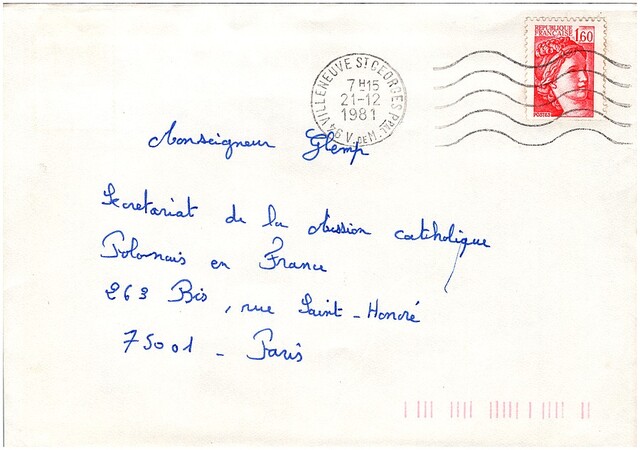 REPUBLIQUE
FRANCAISE
1,60
POSTES
VILLENEUVE ST GEORGES PPAL
7H15
21-12
1981
94 V. DE M.
Monseigneur Glemp
Secretariat de la Mission catholique
Polonais en France
263 Bis, rue Saint-Honoré
75001 - Paris